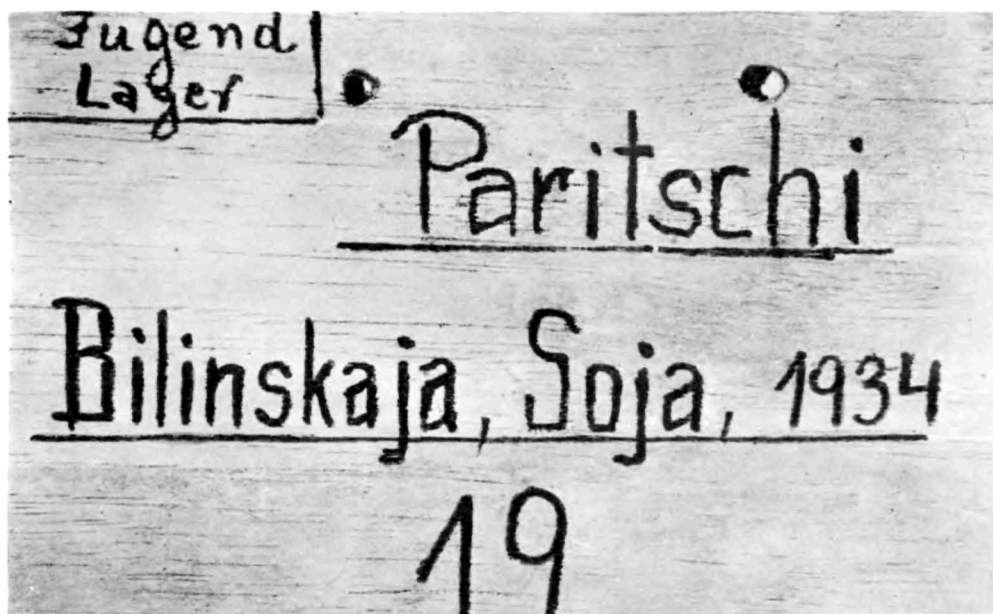 Jugend
Lager
Paritschi
Bilinskaja, Soja, 1934
19